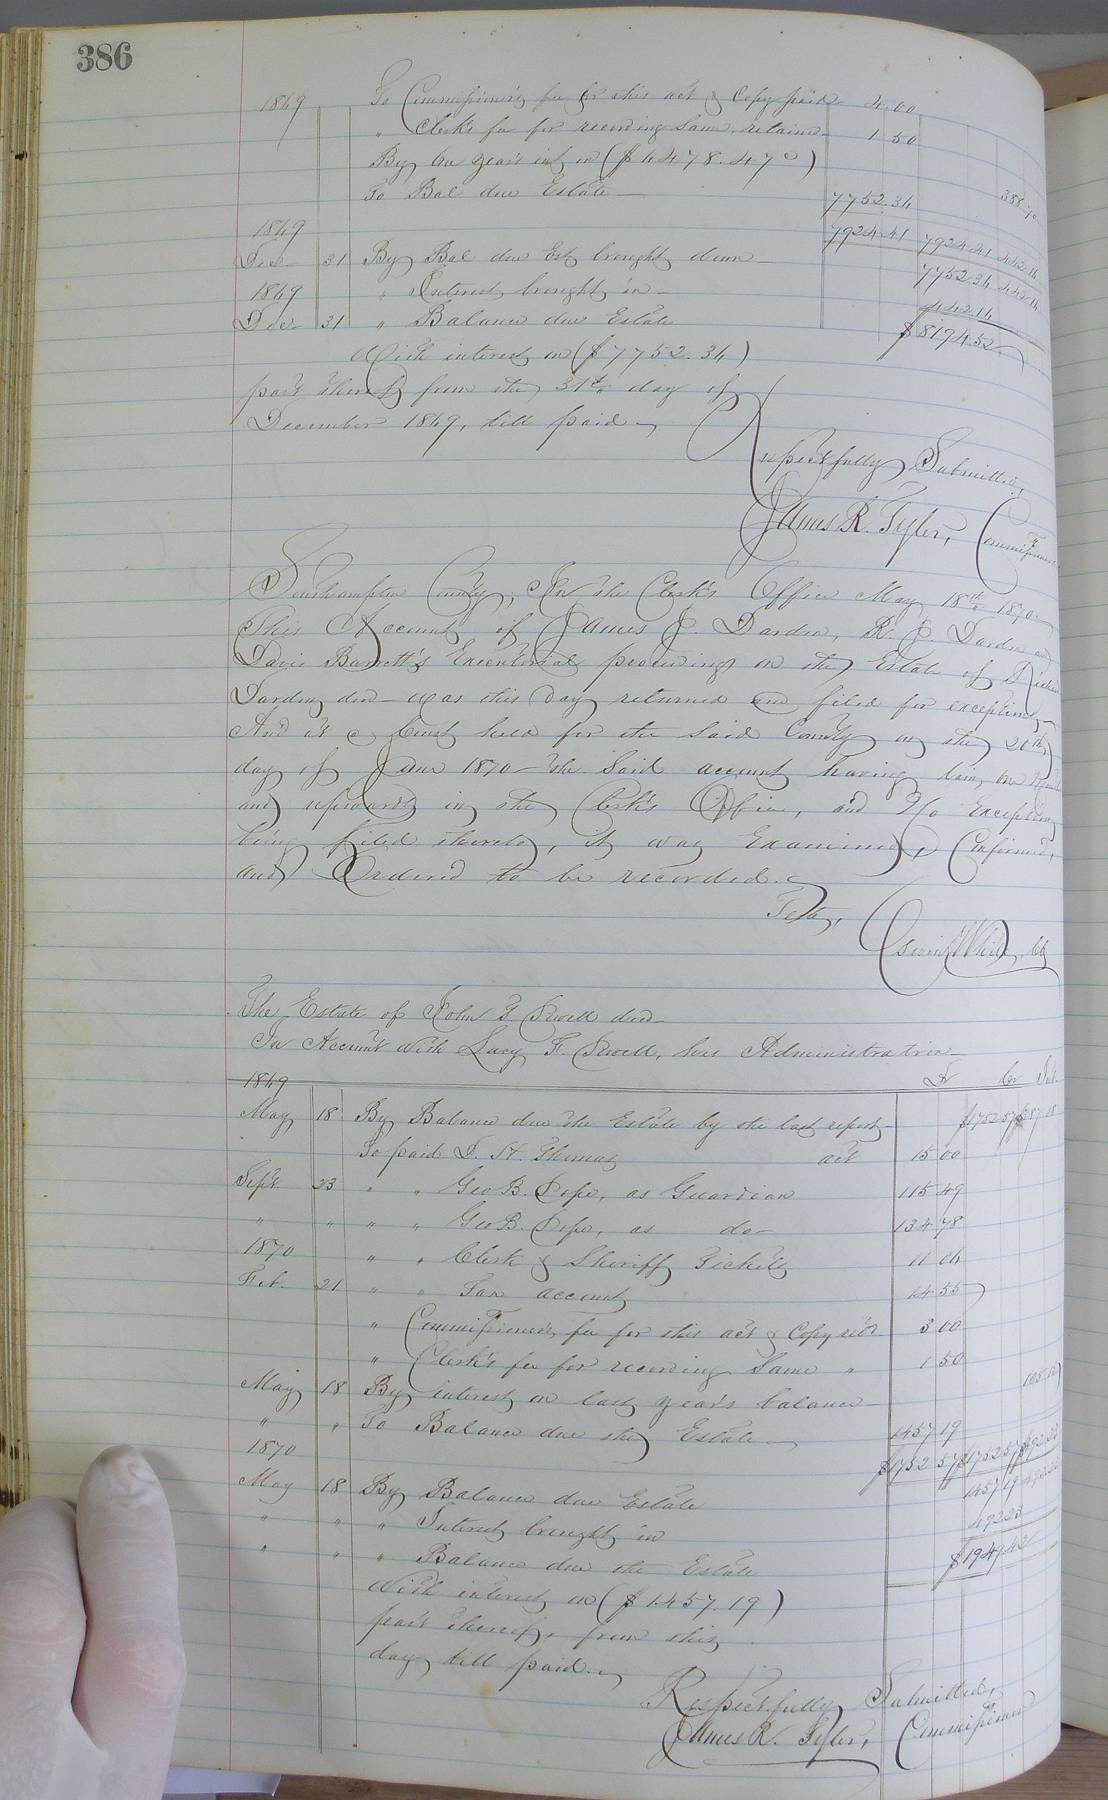 386
1869 To Commissioner's fee for this act & Copy paid 4.00
" Clerk's fee for recording Same, retained 1 50
By one year's int on ($6478.47c) 388.70
To Bal due Estate 7752.36
7924.41 7924.41 442.16
1869
Dec 31 By Bal due Est, brought down 7752.36 442.16
1869 " Interest brought in 442.16
Dec 31 " Balance due Estate $8194.52
With interest on ($7752.36)
part thereof from the 31st day of
December 1869, till paid
Respectfully Submitted,
James R. Tyler, Commissioner
Southampton County, In the Clerk's Office May 18th 1870
This Account of James J. Darden, R. J. Darden and
Davis Barrett's Executorial proceedings on the Estate of
Darden, decd was this day returned and filed for exceptions,
And at a Court held for the Said County on the 20th
day of June 1870 the Said account having lain one
and upwards in the Clerk's Office, and No Exception
being filed thereto, it was Examined, Confirmed,
and Ordered to be recorded.
Teste,
White, Clk
The Estate of John T. Sewell decd
In Account with Lucy F. Sewell, his Administratrix
1869 Dr Cr Int.
May 18 By Balance due the Estate by the last report $1752 57 $387 08
To paid D. H. Thomas act 15 00
Sept. 23 " " Geo B. Pope, as Guardian 115 49
" " " " Geo B. Pope, as do 134 78
1870 " " Clerk & Sheriff Tickets 11 06
Feb. 21 " " Tax account 14 55
" Commissioner's fee for this act & Copy retd 3 00
" Clerk's fee for recording Same " 1 50
May 18 By interest on last year's balance 105.15
" " To Balance due the Estate 1457 19
1870 $1752 57 $1752 57 $492.23
May 18 By Balance due Estate 1457 19 492.23
" " " Interest brought in 492 23
" " " Balance due the Estate $1949.42
With interest on ($1457.19)
part thereof, from this
day till paid.
Respectfully Submitted,
James R. Tyler, Commissioner